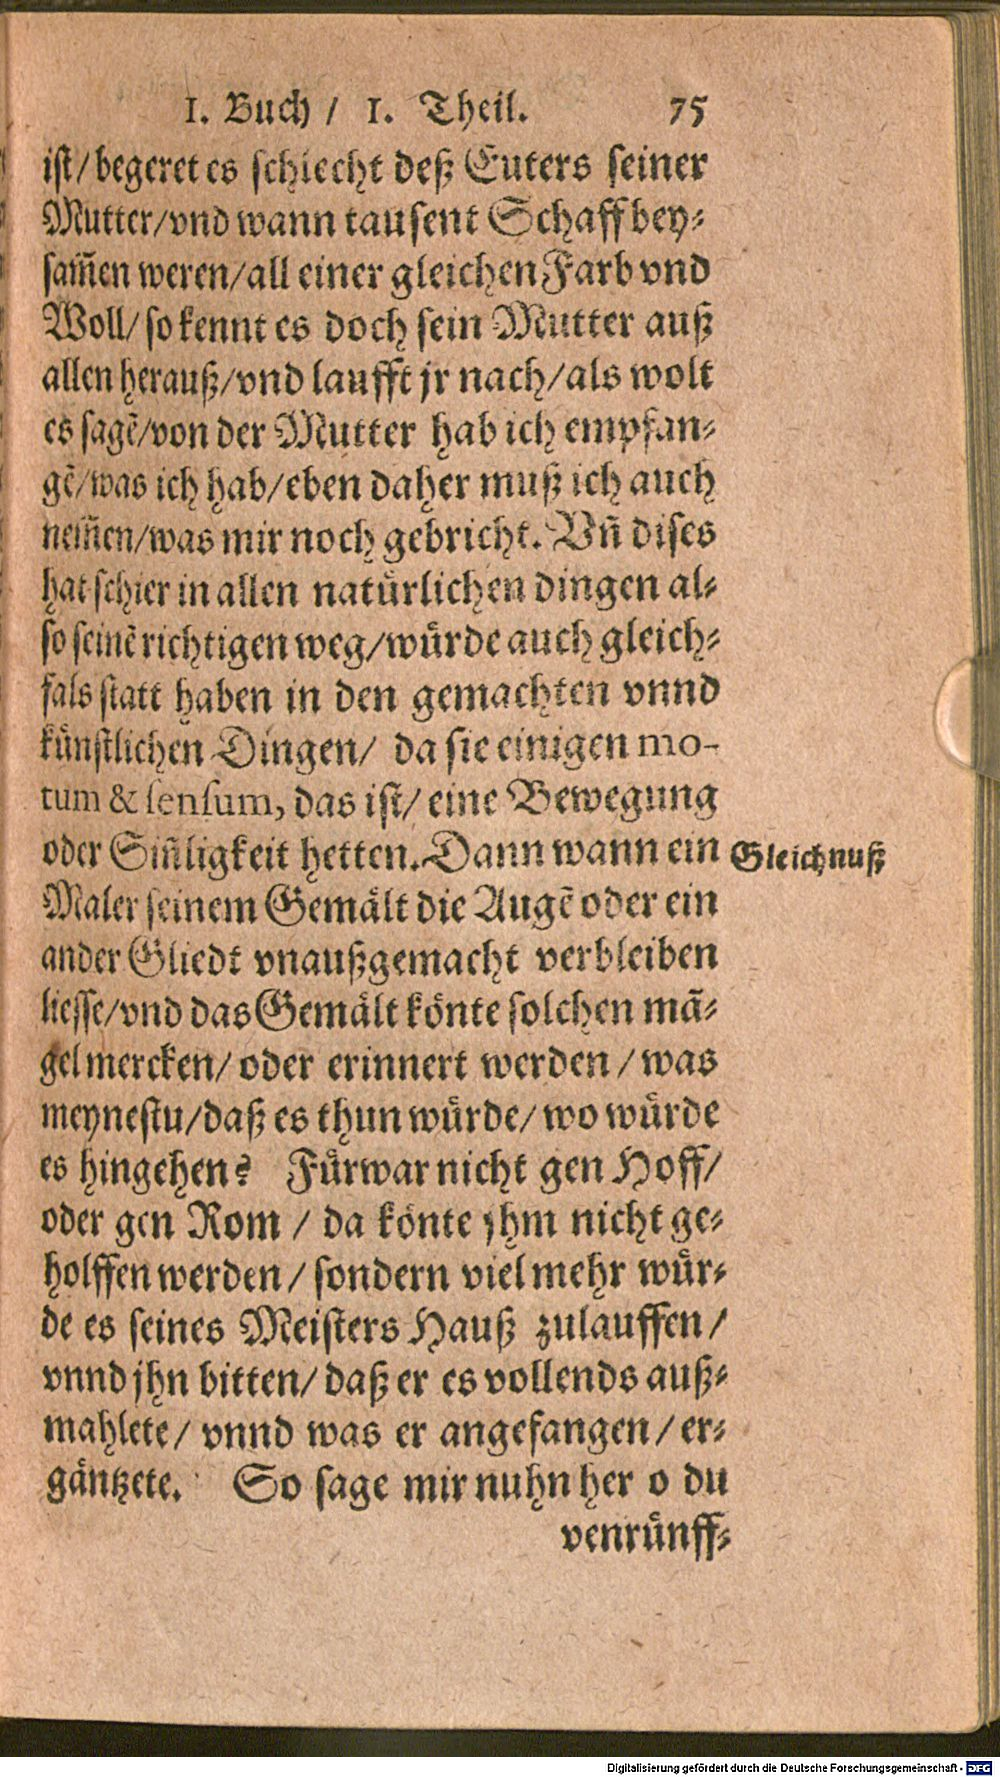 1. Buch / 1. Theil. 75
ist/ begeret es schlecht deß Euters seiner
Mutter/vnd wann tausent Schaff bey⸗
sam̃en weren/all einer gleichen Farb vnd
Woll/ so kennt es doch sein Mutter auß
allen herauß/vnd laufft jr nach/als wolt
es sagẽ/von der Mutter hab ich empfan⸗
gẽ/was ich hab/eben daher muß ich auch
nem̃en/was mir noch gebricht. Vñ dises
hat schier in allen natürlichen dingen al⸗
so seinẽ richtigen weg/würde auch gleich⸗
fals statt haben in den gemachten vnnd
künstlichen Dingen/ da sie einigen mo-
tum & sensum, das ist/ eine Bewegung
oder Siñligkeit hetten. Dann wann ein Gleichnuß
Maler seinem Gemält die Augẽ oder ein
ander Gliedt vnaußgemacht verbleiben
liesse/vnd das Gemält könte solchen mã⸗
gel mercken/ oder erinnert werden / was
meynestu/daß es thun würde/ wo würde
es hingehen? Fürwar nicht gen Hoff/
oder gen Rom / da könte jhm nicht ge⸗
holffen werden / sondern viel mehr wür⸗
de es seines Meisters Hauß zulauffen /
vnnd jhn bitten/ daß er es vollends auß⸗
mahlete / vnnd was er angefangen / er⸗
gäntzete. So sage mir nuhn her o du
venrünff⸗
Digitalisierung gefördert durch die Deutsche Forschungsgemeinschaft - DFG